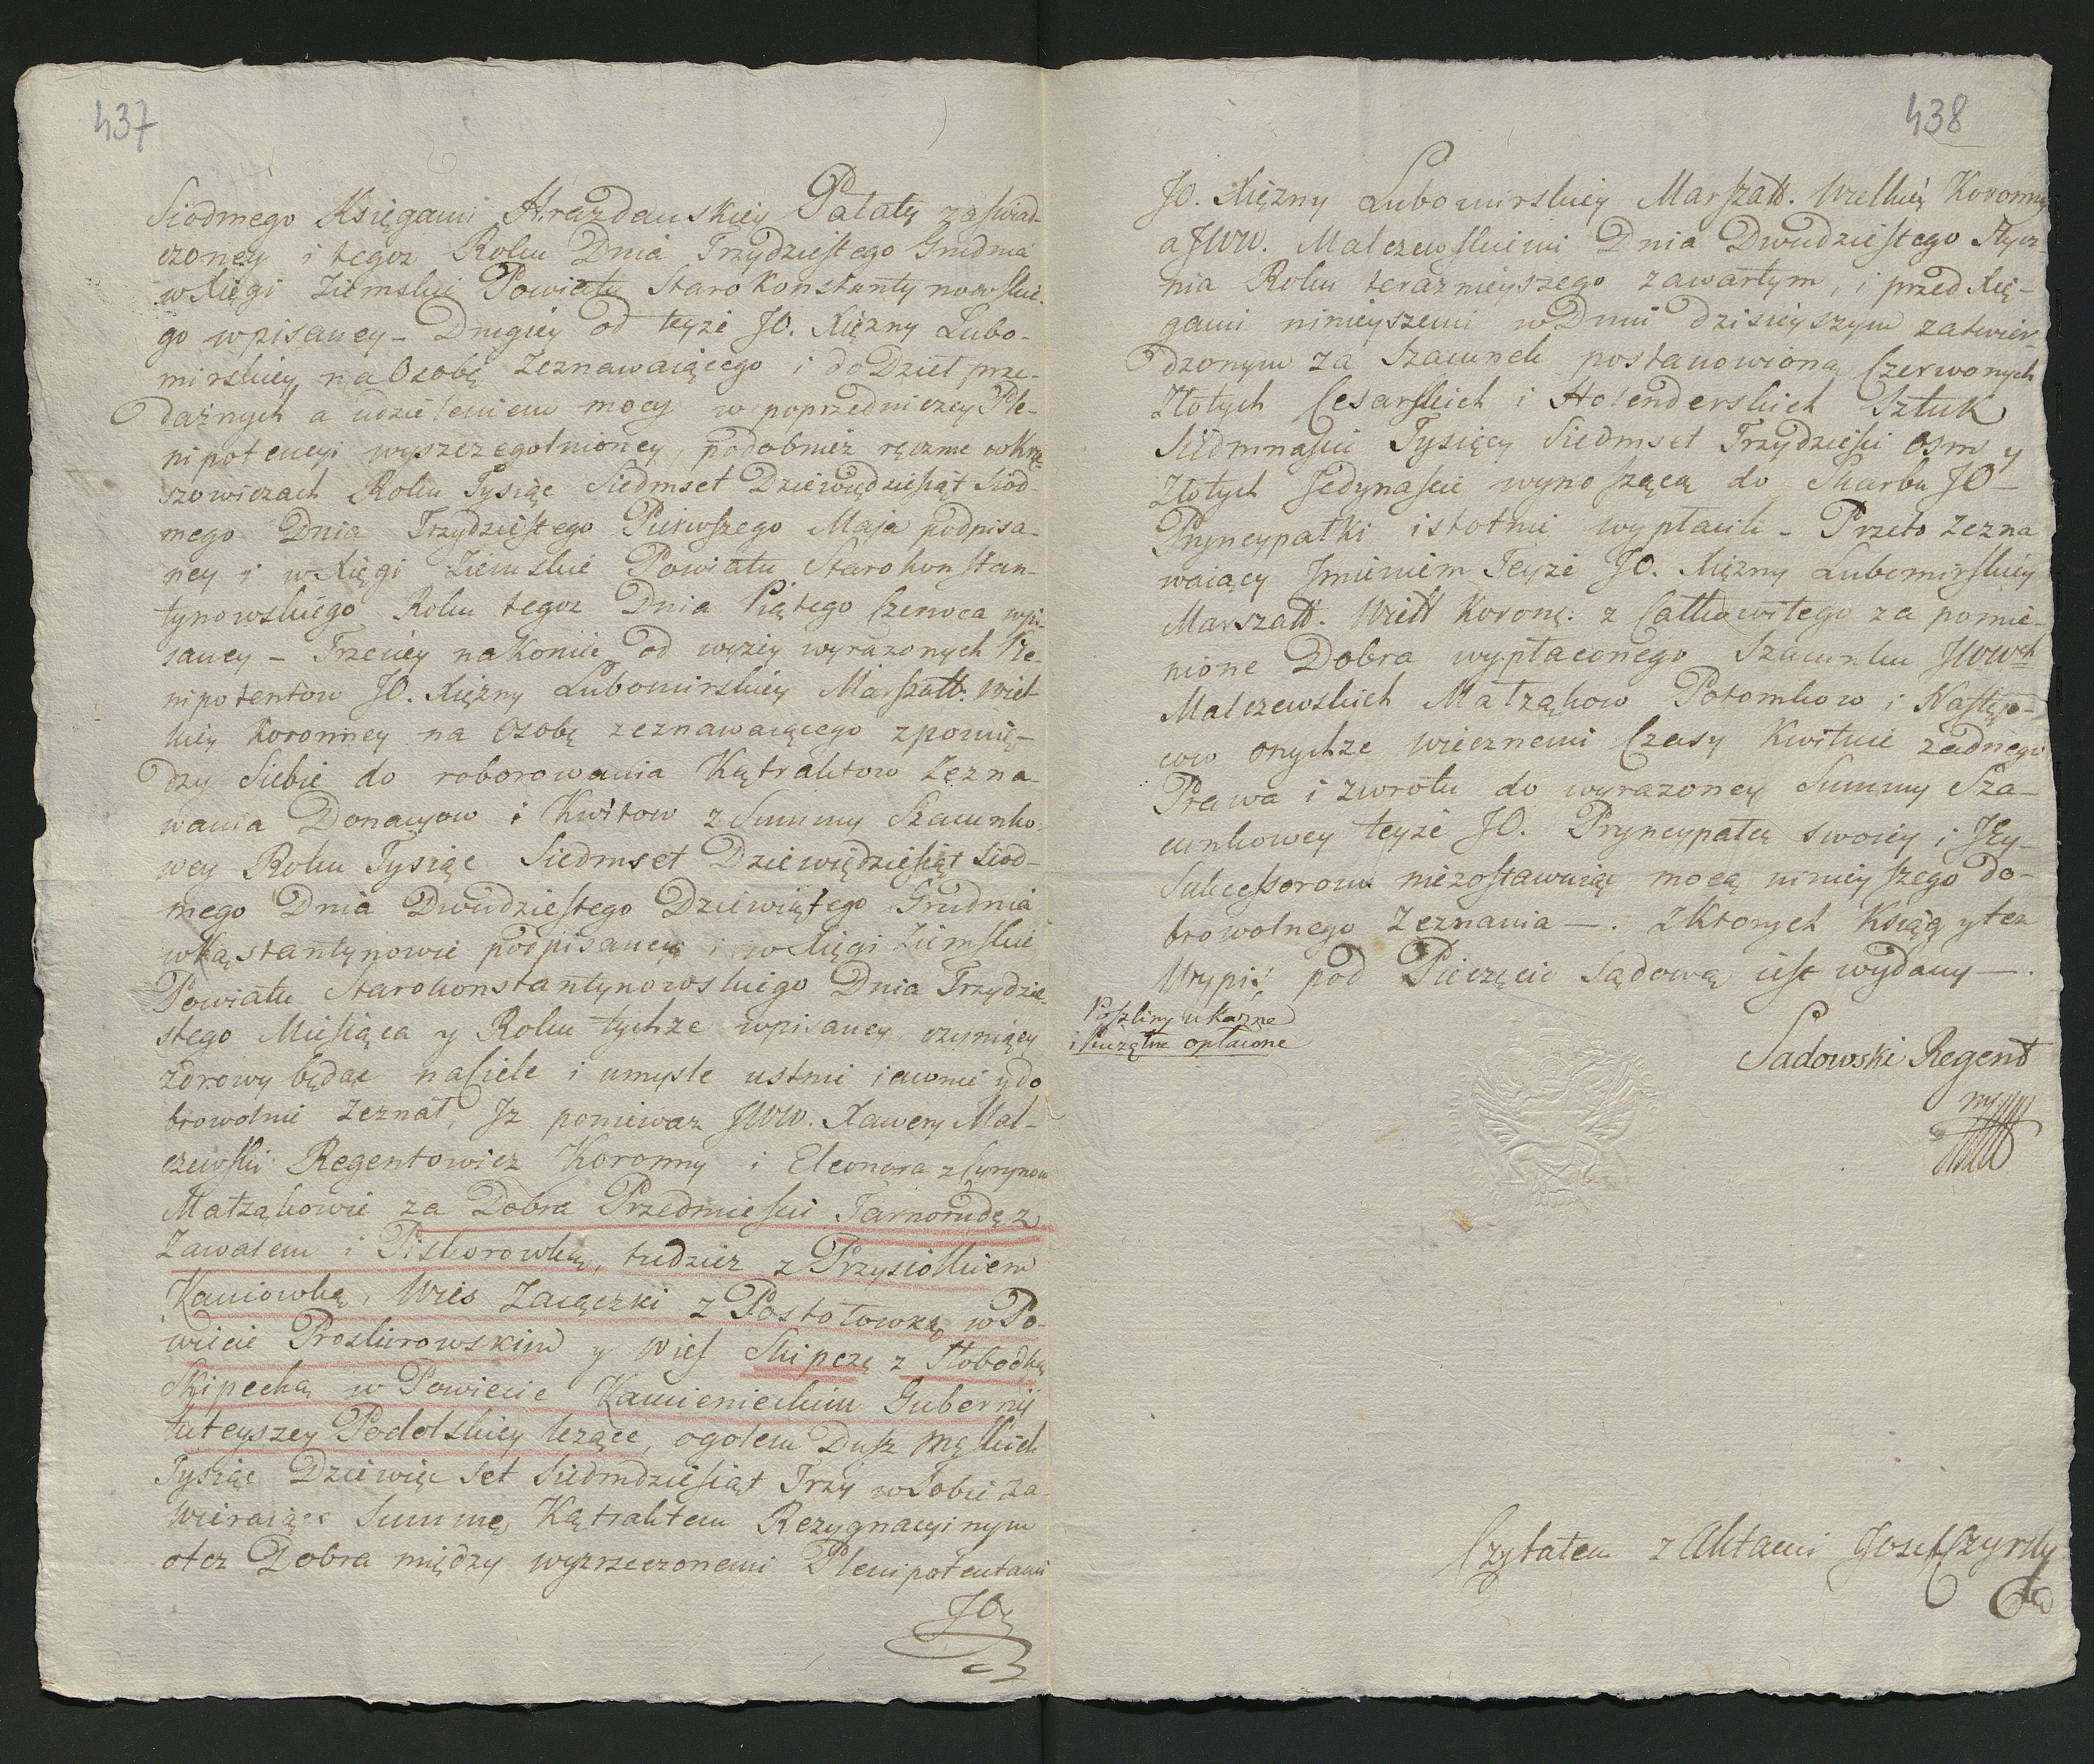 437
Siodmego Księgami Hrazdanskiey Pałaty zaświad-
czoney i tegoż Roku Dnia Trzydziestego Grudnia
w Xięgi Ziemskie Powiatu Staro Konstantynowskie-
go wpisaney – Drugiey od teyże JO. Xiężny Lubo-
mirskiey na Osobę Zeznawaiącego i do Dzieł prze-
dażnych a udzieleniem mocy w poprzedniczey Ple-
nipotencyi wyszczegolnioney, podobnież ręcznie w Krze-
szowicach Roku Tysiąc Siedmset Dziewiędziesiąt Siod-
mego Dnia Trzydziestego Pierwszego Maja podpisa-
ney i w Xięgi Ziemskie Powiatu Starokonstan-
tynowskiego Roku tegoż Dnia Piątego Czerwca wpi-
saney – Trzeciey nakoniec od wyżey wyrażonych Ple-
nipotentow JO. Xiężny Lubomirskiey Marszałł. Wiel-
kiey Koronney na Osobę zeznawaiącego z pomię-
dzy Siebie do roborowania Kątraktow Zezna-
wania Donacyow i Kwitow z Summy Szacunko-
wey Roku Tysiąc Siedmset Dziewiędziesiąt Siod-
mego Dnia Dwudziestego Dziewiątego Grudnia
w Kąstantynowie podpisaney i w Xięgi Ziemskie
Powiatu Starokonstantynowskiego Dnia Trzydzie-
stego Miesiąca y Roku tychże wpisaney czyniący
zdrowy będąc na Ciele i umyśle ustnie iawnie y do
browolnie Zeznał, Jż ponieważ JWW. Xawery Mal-
czewski Regentowicz Koronny i Eleonora z Cyrynow
Małżąkowie za Dobra Przedmieście Tarnorudę z
Zawalem i Piskorowką, tudzież z Przysiołkiem
Kaniowką, Wies Zaiączki z Postołowką w Po-
wiecie Proskirowskim y Wies Skipczę z Słobodką
Skipecką w Powiecie Kamienieckim Gubernij
tuteyszey Podolskiey leżące, ogołem Dusz Męskich
Tysiąc Dziewięć set Siedmdziesiąt Trzy w Sobie za
wieraiące Summę Kątraktem Rezygnacyinym
otez Dobra między wyzrzeczonemi Plenipotentami
JO.
438
JO. Xiężny Lubomirskiey Marszałł. Wielkiey Koronney
a JWW. Malczewskiemi Dnia Dwudziestego Stycz-
nia Roku teraznieyszego zawartym, i przed Xię-
gami ninieyszemi w Dniu dzisieyszym zatwier-
dzonym za Szacunek postanowioną Czerwonych
Złotych Cesarskich i Holenderskich Sztuk
Siedmnaście Tysięcy Siedmset Trzydzieści osm y
Złotych Jedynaście wynoszącą do Skarbu JO
Pryncypałki istotnie wypłacili – Przeto Zezna
waiący Jmieniem Teyże JO. Xiężny Lubomirskiey
Marszałł. Wiell Koronę: z Całkowitego za pomie-
nione Dobra wypłaconego Szacunku JWWch
Malczewskich Małżąkow Potomkow i Następ-
cow onychże wiecznemi Czasy Kwituie żadnego
Prawa i zwrotu do wyrażoney Summy Sza-
cunkowey teyże JO. Pryncypałce swoiey i Jey
Sukcessorom niezostawuiąc mocą ninieyszego do-
browolnego Zeznania —. Z Ktorych Ksiąg y ten
Wypis pod Pieczęcie Sądową iest wydany —.
Poszliny ukaźne
i Pieczętne opłacone
Sadowski Regent
mpp
Czytałem z Aktami Josef Czyrsky